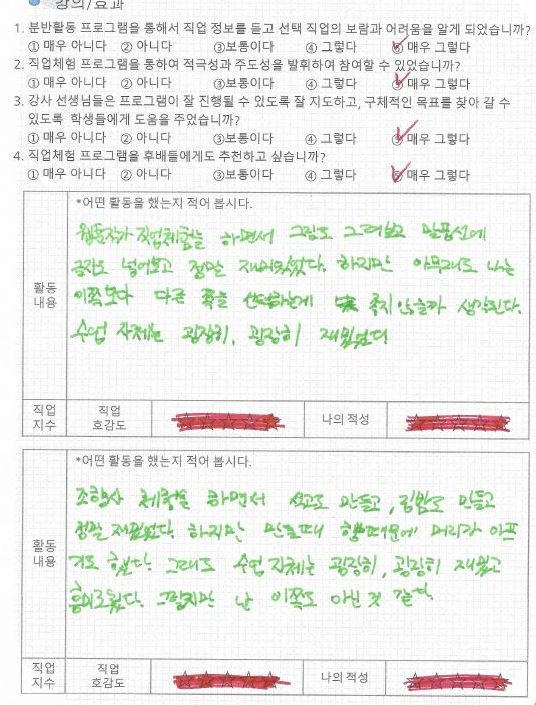 강의/효과
1. 분반활동 프로그램을 통해서 직업 정보를 듣고 선택 직업의 보람과 어려움을 알게 되었습니까?
① 매우 아니다 ② 아니다 ③보통이다 ④ 그렇다 ⑤ 매우 그렇다
2. 직업체험 프로그램을 통하여 적극성과 주도성을 발휘하여 참여할 수 있었습니까?
① 매우 아니다 ② 아니다 ③보통이다 ④ 그렇다 ⑤ 매우 그렇다
3. 강사 선생님들은 프로그램이 잘 진행될 수 있도록 잘 지도하고, 구체적인 목표를 찾아 갈 수
있도록 학생들에게 도움을 주었습니까?
① 매우 아니다 ② 아니다 ③보통이다 ④ 그렇다 ⑤ 매우 그렇다
4. 직업체험 프로그램을 후배들에게도 추천하고 싶습니까?
① 매우 아니다 ② 아니다 ③보통이다 ④ 그렇다 ⑤ 매우 그렇다
*어떤 활동을 했는지 적어 봅시다.
활동
내용
웹툰작가 직업체험을 하면서 그림도 그려보고 말풍선에
글자도 넣어보고 정말 재미있었다. 하지만 아무래도 나는
이쪽보다 다른 쪽을 선택하는게 좋지 않을까 생각된다.
수업 자체는 굉장히, 굉장히 재밌었다
직업
지수
직업
호감도
나의 적성
*어떤 활동을 했는지 적어 봅시다.
활동
내용
조향사 체험을 하면서 석고도 만들고, 립밤도 만들고
정말 재밌었다. 하지만 만들때 향때문에 머리가 아프
기도 했다. 그래도 수업 자체는 굉장히, 굉장히 재밌고
흥미로웠다. 그렇지만 난 이쪽도 아닌 것 같다.
직업
지수
직업
호감도
나의 적성